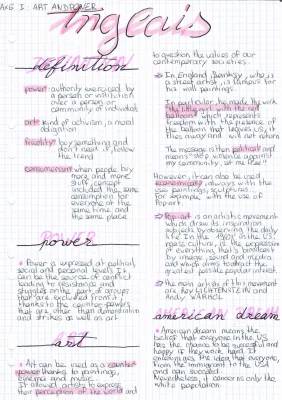 AXE I: ART AND POWER
Inglais
definition
power: authority exercised by
a person or institution
over a person or
community of individuals
art: kind of activism, a moral
obligation
frivolity: buy something and
don't need it, follow
the trend
consumerism: when people buy
more and more
stuff, concept
included the same
consumption for
everyone at the
same time and
the same place
power
• Power is expressed at political,
social and personal levels. It
can be the sources of conflict
leading to resistance and
struggles on the part of groups
that are excluded from it,
thanks to the counter powers
that are other than demonstration
and strikes as well as art.
art
• Art can be used as a counter
power thanks to paintings,
cinema and music.
It allowed artists to express
their perception of the world and
to question the values of our
contemporary societies.
⇒ In England Banksy, who is
a street artist, is famous for
his wall paintings.
In particular, he made the work
"the little girl with the red
balloon" which represents
freedom with the presence of
the balloon that leaves us, it
flies away and will not return
The message is then political and
means "stop violence against
my community, let me free"!
However, it can also be used
economically, always with the
use paintings, sculptures
for example with the use of
Popart.
⇒ Pop-art is an artistic movement
which draws its inspiration
subjects by observing the daily
life. In the 1960s in the US,
mass culture, is the expression
of everything that's broadcast
by image, sound and media
and which aims towards the
greatest possible popular interest.
⇒ The main artists of this movement
are Roy LICHTENSTEIN and
Andy WARHOL
american dream
• American dream means the
belief that everyone in the US
has the chance to be successful and
happy if they work hard. It
entertains the idea that everyone,
from the immigrant to the USA
and can succeed.
Nevertheless, it concerns only the
white population.